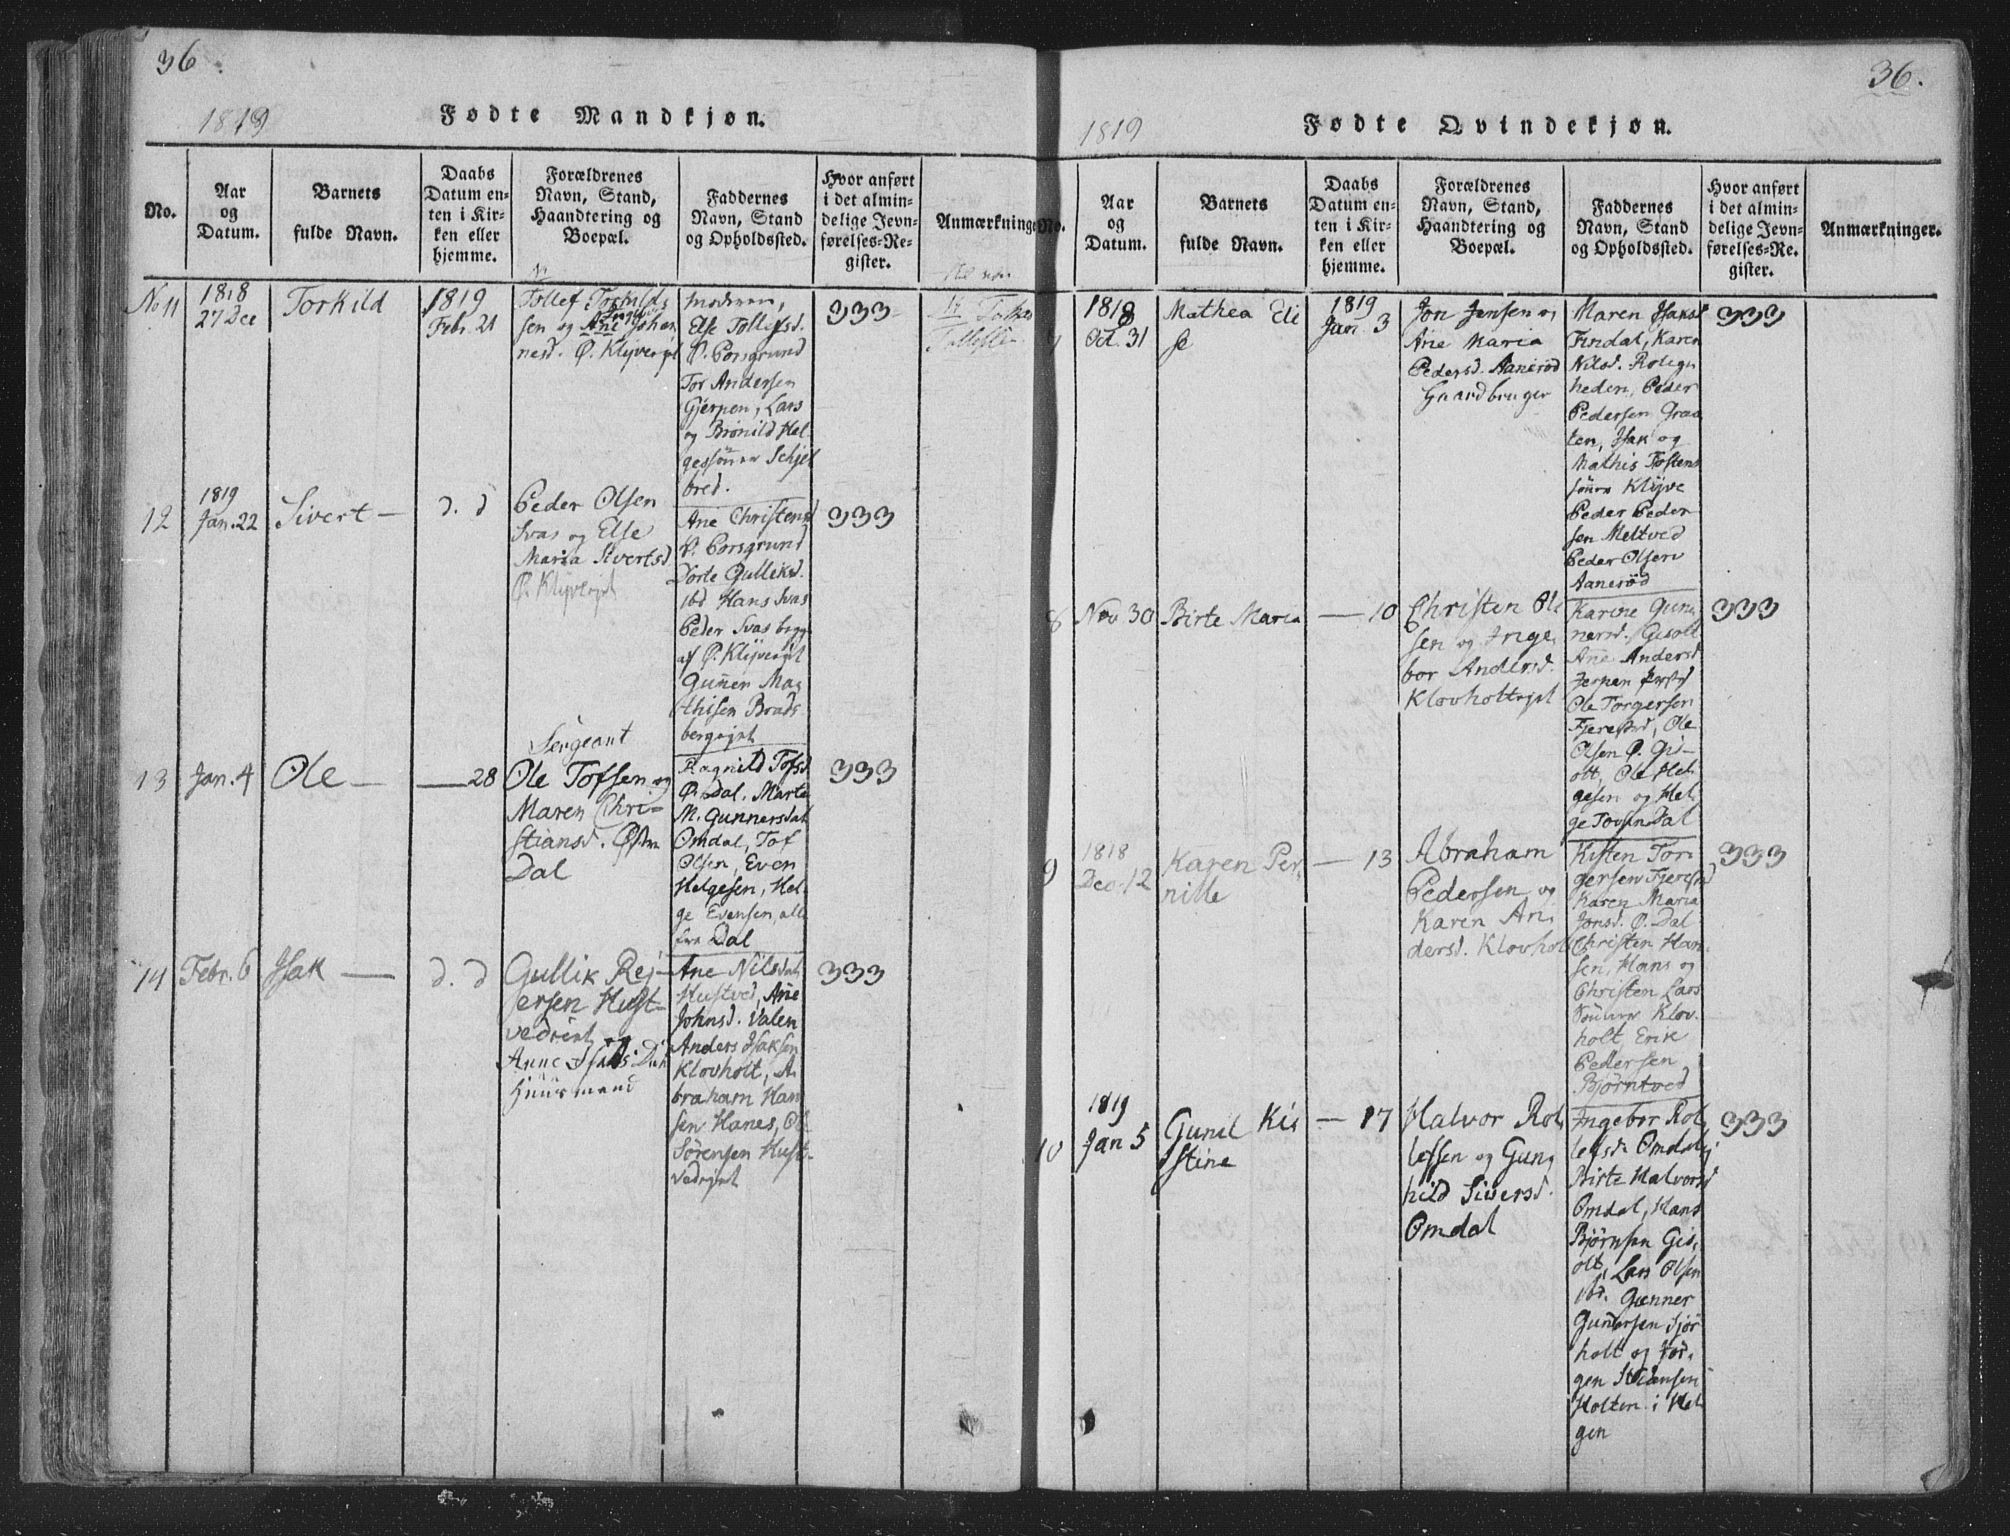 36.
1819
Fødte Mandkjøn.
No.
Aar
og
Datum.
Barnets
fulde Navn.
Daabs
Datum en-
ten i Kir-
ken eller
hjemme.
Forældrenes
Navn, Stand,
Haandtering og
Boepæl.
Faddernes
Navn, Stand
og Opholdssted.
Hvor anført
i det almin-
delige Jevn-
førelses-Re-
gister.
Anmærkninge
No 11
1818
27 Dec
Torkild
1819
Febr. 21
Tollef Torkilds
sen og Ane Johan
nesd. Ø. Klyvejet
Modren,
Else Tollefsd.
V. Porsgrund
Tor Andersen
Gjerpen, Lars
og Brønild Hel
gessønner Schjel
bred.
333
12
1819
Jan. 22
Sivert —
d. d
Peder Olsen
Svas og Else
Maria Sivertsd
Ø. Klyvejet
Ane Christensd
V. Porsgrund
Dorte Gulliksd.
ibd Hans Svas
Peder Svas begge
af Ø. Klyvejet
Guner Mag
thisen Brads
bergejet
333
13
Jan. 4
Ole —
— 28
Sergeant
Ole Tofsen og
Maren Chri-
stiansd. Østre
Dal
Ragnild Tofsd
Ø. Dal. Marte
M. Gunnersdat
Omdal, Tof
Olsen, Even
Helgesen, Hel
ge Evensen, alle
fra Dal
333
14
Febr. 6
Isak —
d. d
Gullik Rej-
ersen Hust-
vedeiet og
Anne Isaks Dat
Huusmand
Ane Nilsdat
Hustved, Ane
Johnsd. Valen
Anders Isaksen
Klovholt, A
braham Han
sen Hanes, Ole
Sörensen Hust-
vedejet
333
36.
1819
Fødte Qvindekjøn.
No.
Aar
og
Datum.
Barnets
fulde Navn.
Daabs
Datum en-
ten i Kir-
ken eller
hjemme.
Forældrenes
Navn, Stand,
Haandtering og
Boepæl.
Faddernes
Navn, Stand
og Opholdssted.
Hvor anført
i det almin-
delige Jevn-
førelses-Re-
gister.
Anmærkninger.
1818
Oct. 31
Mathea Eli
se
1819
Jan. 3
Jon Jensen og
Ane Maria
Pedersd. Aanerød
Gaardbruger
Maren Isaksd
Findal, Karen
Nilsd. Rolign
heden, Peder
Pedersen Graa
ten, Isak og
Mathis Tostens
sönner Klyve
Peder Peder
sen Meltved
Peder Olsen
Aanerød
333
8
Nov 30
Birte Maria
— 10
Christen Ole
sen og Inge
bor Andersd.
Klovholtejet
Karine Gun
nersd. Gisolt
Ane Andersd
Ole Torgersen
Fjerestad, Ole
Olsen Ø. Gis-
olt, Ole Hel
gesen og Hel
ge Dal
333
9
1818
Dec. 12
Karen Per-
nille
— 13
Abraham
Pedersen og
Karen An
dersd. Klovholt
Kisten Tor
gersen Fjerestad
Karen Maria
Jonsd. Ø. Dal
Christen Han
sen, Hans og
Christen Lars
Sönner Klov
holt, Erik
Pedersen
Bjørntved
333
10
1819
Jan 5
Gunil Kis
stine
— 17
Halvor Rol
lefsen og Gun
hild Siversd.
Omdal
Ingebor Rol
lefsd. Omdal
Birte Halvorsd
Omdal, Hans
Bjørnsen Gis
olt, Lars Olsen
ibd. Gunner
Gundersen Sjør
holt og Jør
gen Stiansen
Holten i Hel
gen